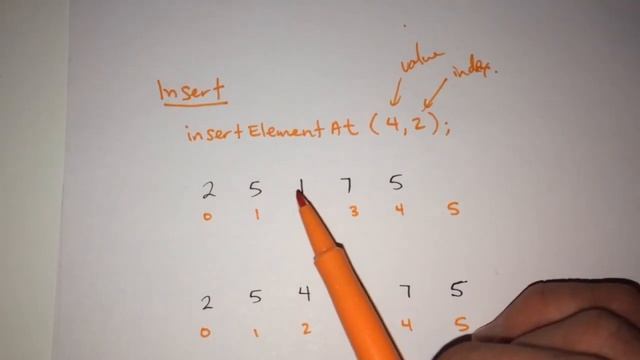 value
index.
Insert
insertElementAt (4,2);
2 5 1 7 5
0 1 3 4 5
2 5 4 7 5
0 1 2 4 5